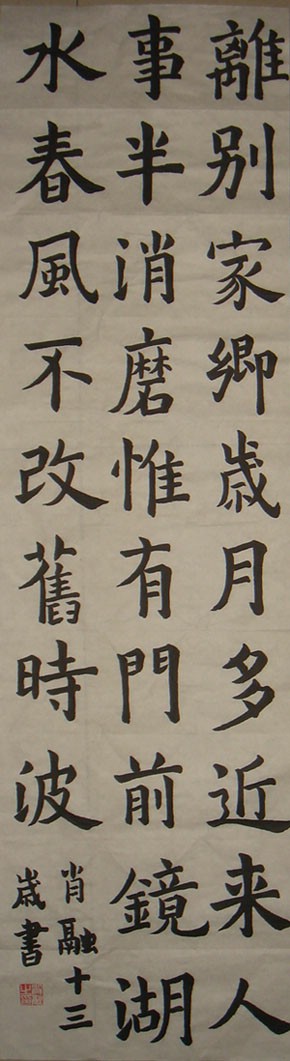 離别家卿歲月多近来人
事半消磨惟有門前鏡湖
水春風不改舊時波
肖融十三
歲書